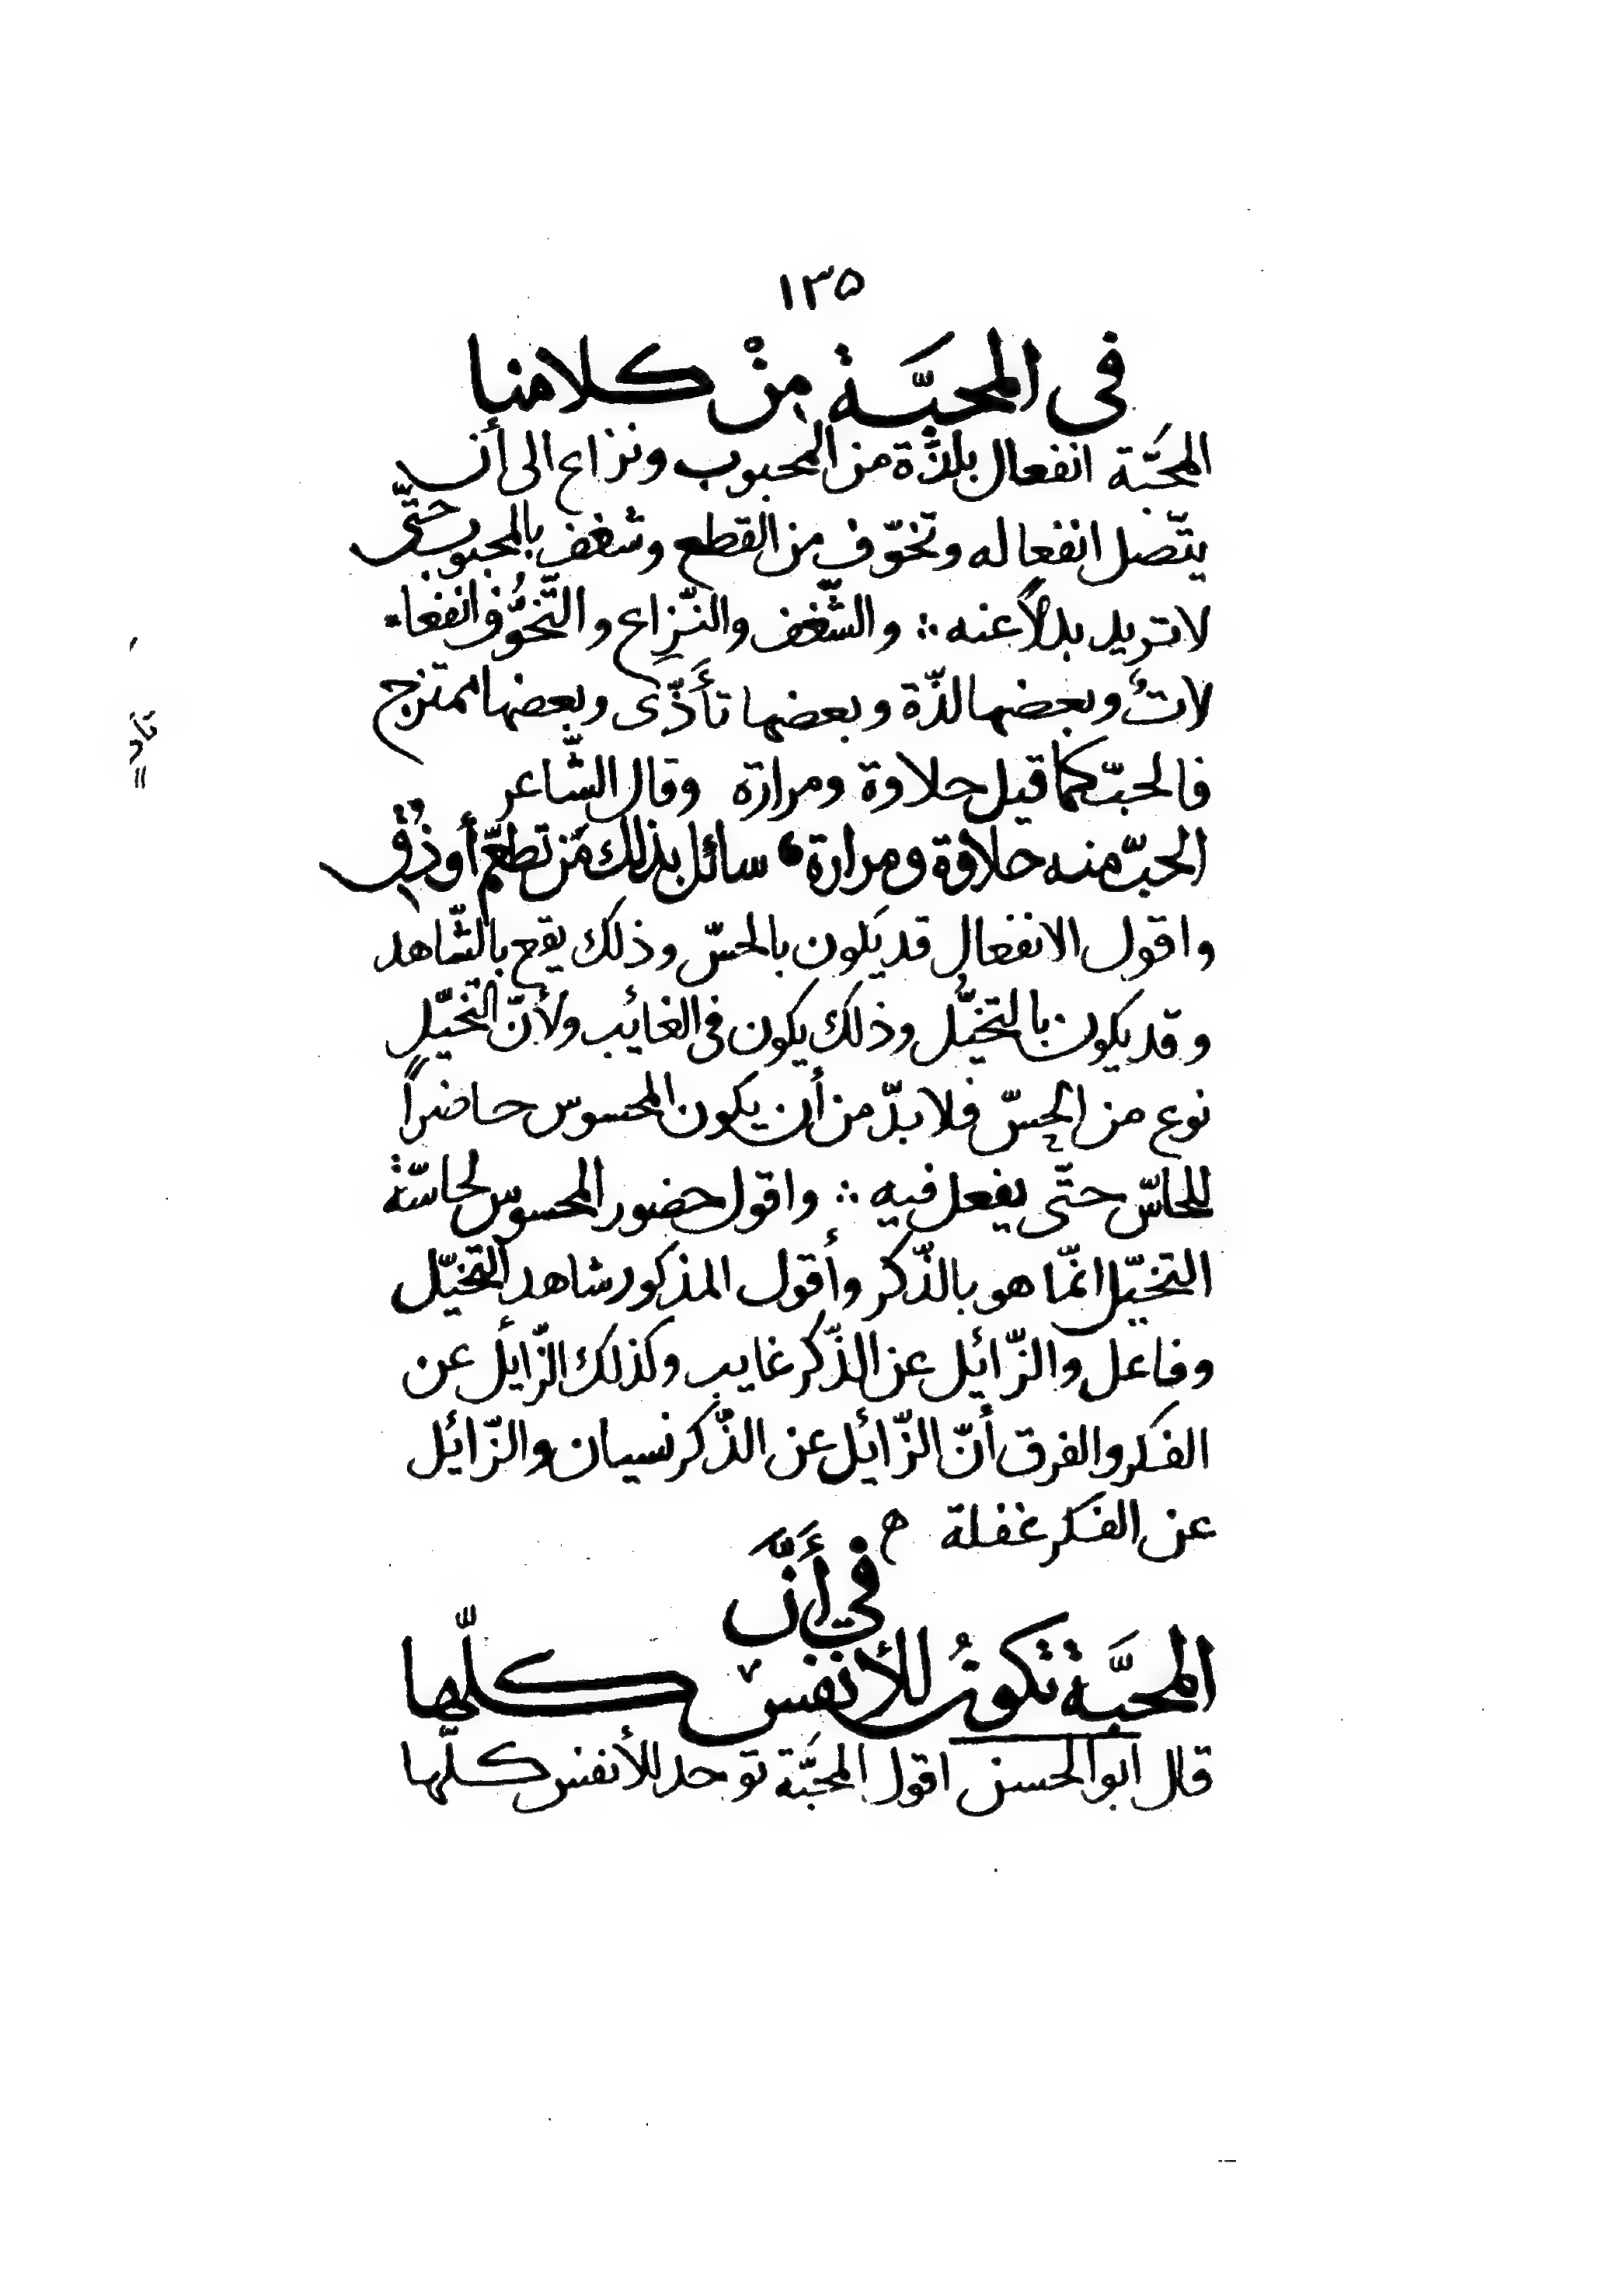 ١٣٥
في المحبَّة مِنْ كلامنا
المحَبَّة انفعال بلذّة من المحبوب ونزاع الى أن
يتّصل انفعاله وتخوّف من القطع وشغف بالمحبوب حتّى
لا تريد بدلاً عنه ∴ والشّغف والنّزاع والتّخوُّف انفعا-
لاتٌ وبعضها لذّة وبعضها تأَذّى وبعضها ممتزج
فالحبّ كما قيل حلاوة ومرارة وقال الشّاعر
الحبّ منه حلاوة ومرارة، سائل بذلك مَن تطعّم أو ذُقِ
واقول الانفعال قد يكون بالحسّ وذلك يقع بالشّاهد
وقد يكون بالتخيُّل وذلك يكون فى الغائب ولأنّ التخيّل
نوع من الحِسّ فلا بدّ من أن يكون المحسوس حاضراً
للحاسّ حتّى يفعل فيه ∴ واقول حضور المحسوس لحاسّة
التخيّل انّما هو بالذّكر وأقول المذكور شاهد التخيّل
وفاعل والزّائل عن الذّكر غايب وكذلك الزّايل عن
الفكر والفرق أنّ الزّائل عن الذّكر نسيان والزّائل
عن الفكر غفلة ه
في أَنَّ
المحبَّة تكونُ للأنفس كلّها
قال ابو الحسن اقول المحَبَّة توجد للأنفس كلّها